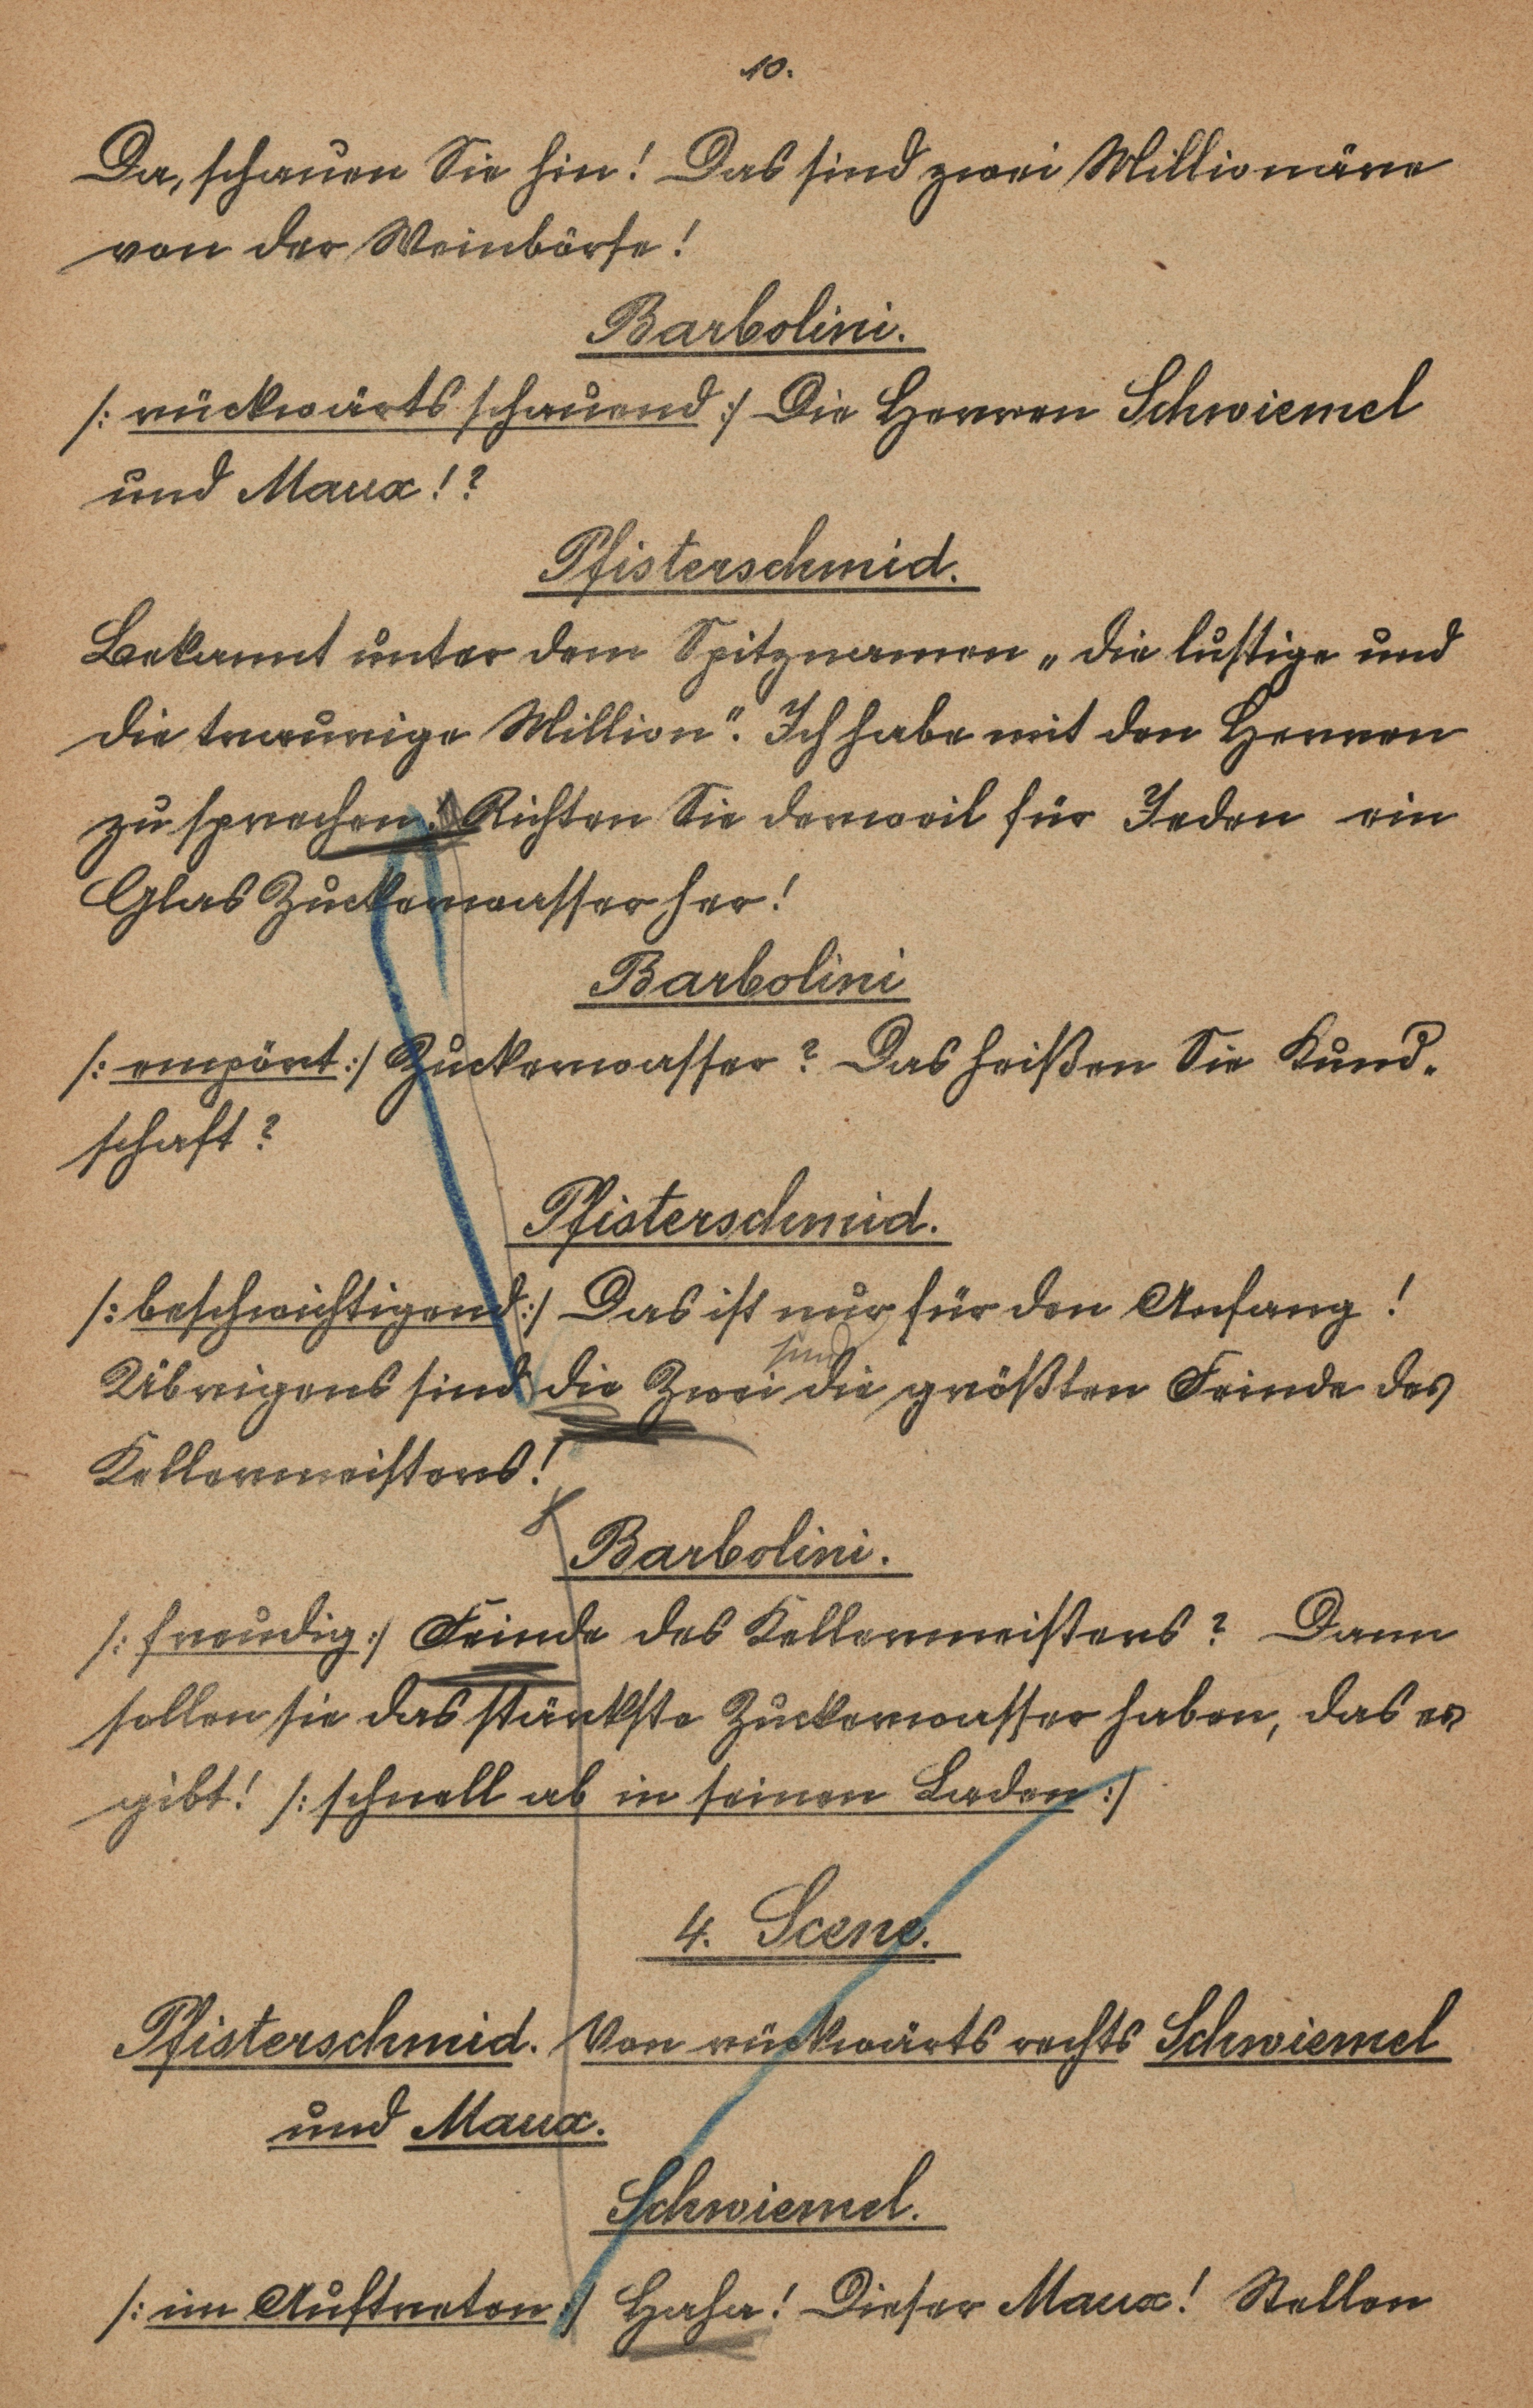 10.
Da, schauen Sie hin! Das sind zwei Millionäre
von der Weinbörse!
Barbolini.
/: rückwärts schauend :/ Die Herren Schwiemel
und Maux!?
Pfisterschmid.
Bekannt unter dem Spitznamen „die lustige und
die traurige Million“. Ich habe mit den Herren
zu sprechen. Richten Sie derweil für Jeden ein
Glas Zuckerwasser her!
Barbolini
/: empört :/ Zuckerwasser? Das heißen Sie Kund-
schaft?
Pfisterschmid.
/: beschwichtigend :/ Das ist nur für den Anfang!
sind
Übrigens sind die Zwei die größten Feinde des
Kellermeisters!
Barbolini.
/: freudig :/ Feinde des Kellermeisters? Dann
sollen sie das stärkste Zuckerwasser haben, das es
gibt! /: schnell ab in seinen Laden :/
4. Scene.
Pfisterschmid. Von rückwärts rechts Schwiemel
und Maux.
Schwiemel.
/: im Auftreten :/ Haha! Dieser Maux! Stellen